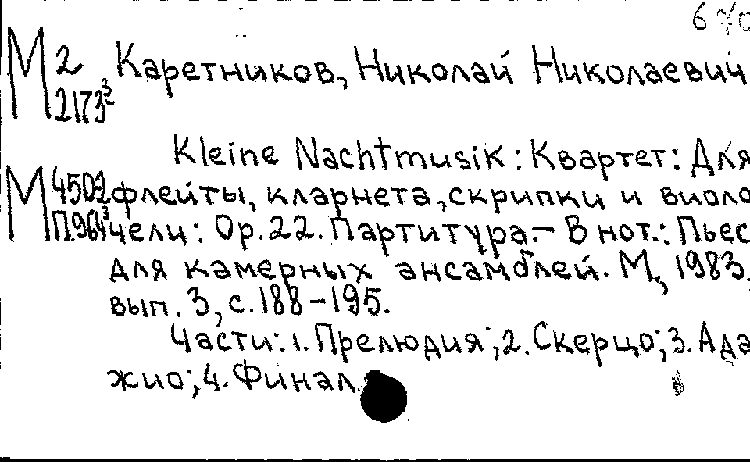 М 2 Каретников, Николай Николаевич
2173
Kleine Nachtmusik: Квартет: Для
М 4502 флейты, кларнета, скрипки и виоло
П964 чели: Ор. 22. Партитура.- В нот.: Пьес
для камерных ансамблей. М., 1983,
вып. 3, с. 188-195.
Части: 1. Прелюдия; 2. Скерцо; 3. Ада
жио; 4. Финал